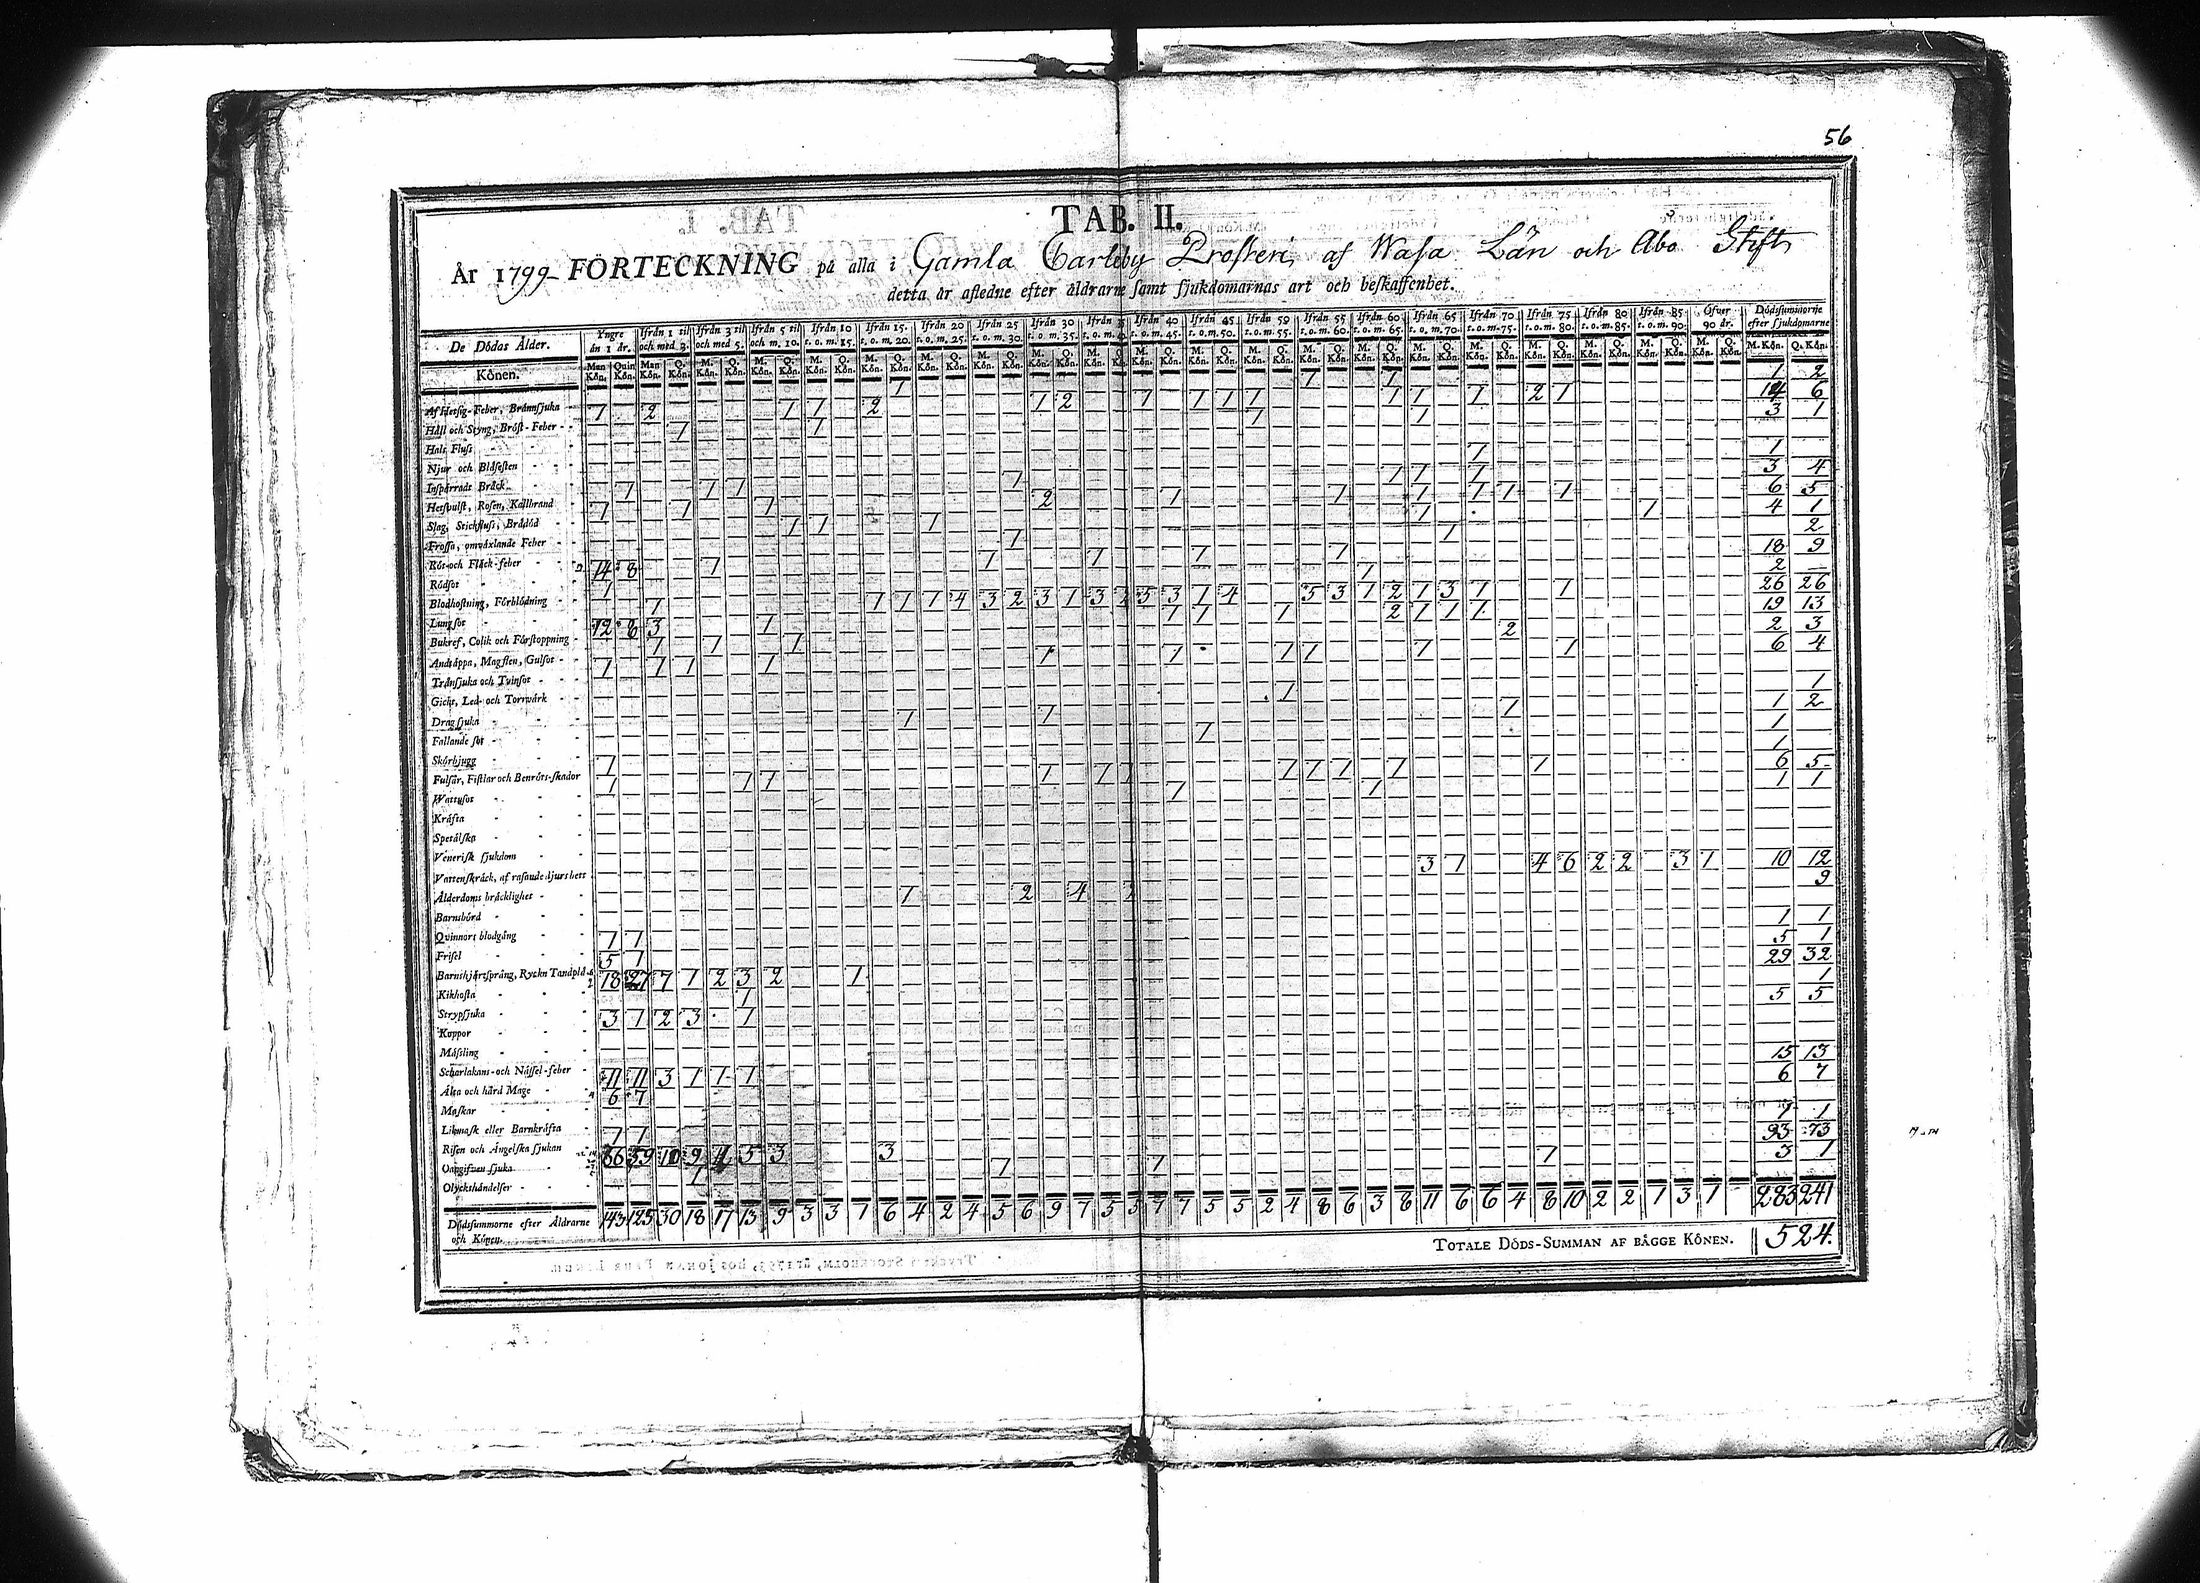 56
TAB. II.
År 1799 FÖRTECKNING på alla i Gamla Carleby Prosteri, af Wasa Län och Åbo Stift,
detta år afledne efter åldrarne samt sjukdomarnas art och beskaffenhet.
De Dödas Ålder. Yngre än 1 år. Ifrån 1 til och med 3. Ifrån 3 til och med 5. Ifrån 5 til och m. 10. Ifrån 10 t. o. m. 15. Ifrån 15 t. o. m. 20. Ifrån 20 t. o. m. 25. Ifrån 25 t. o. m. 30. Ifrån 30 t. o. m. 35. Ifrån t. o. m. Ifrån 40 t. o. m. 45. Ifrån 45 t. o. m. 50. Ifrån 50 t. o. m. 55. Ifrån 55 t. o. m. 60. Ifrån 60 t. o. m. 65. Ifrån 65 t. o. m. 70. Ifrån 70 t. o. m. 75. Ifrån 75 t. o. m. 80. Ifrån 80 t. o. m. 85. Ifrån 85 t. o. m. 90. Öfver 90 år. Dödssummorne efter sjukdomarne
Könen. Man Kön. Quin Kön. Man Kön. Q. Kön. M. Kön. Q. Kön. M. Kön. Q. Kön.
1 2
Af Hetsig-Feber, Brännsjuka 6
Håll och Styng, Bröst-Feber 3 1
Hals Fluss
Njur och Blåsesten 1
Inspärradt Bråck 3 4
Hetsvulst, Rosen, Kallbrand 6 5
Slag, Stickfluss, Bråddöd 4 1
Frossa, omväxlande Feber 2
Röt-och Fläck-feber 14 8 1 18 9
Rödsot 1 1 2
Blodhostning, Förblödning 1 1 1 1 4 3 2 3 1 3 5 3 1 4 5 3 1 2 1 3 1 1 26 26
Lungsot 12 8 3 1 19 13
Bukref, Colik och Förstoppning 1 1 1 2 3
Andtäppa, Magsten, Gulsot 1 1 1 1 6 4
Tränsjuka och Tvinsot
Gicht, Led- och Torrvärk 1
Dragsjuka 1 1 1 1 2
Fallande sot 1 1
Skörbjugg 1 1
Fulsår, Fistlar och Benröts-skador 1 1 1 6 5
Wattusot 1 1
Kräfta
Spetälska
Venerisk sjukdom 3 1 4 6 2 2 3 1 10 12
Vattenskräck, af rasande djurs bett 9
Ålderdoms bräcklighet 1 2 4
Barnsbörd 1 1
Qvinnors blodgång 1 1 5 1
Frisel 5 1 29 32
Barnshjärtsprång, Ryckn Tandplå 18 27 7 1 2 3 2 1 1
Kikhosta 1 5 5
Strypsjuka 3 1 2 3 1
Koppor
Mässling 15 13
Scharlakans-och Nässel-feber 11 11 3 1 1 1 6 7
Älta och hård Mage 6 7
Maskar 1 1
Likmask eller Barnkräfta 1 1 93 73
Risen och Ängelska sjukan 66 59 10 9 4 5 3 3 1 3 1
Oangifven sjuka 1 1 1
Olyckshändelser
Dödssummorne efter Åldrarne och Könen. 143 125 30 18 17 13 9 3 3 1 6 4 2 4 5 6 9 7 5 5 7 7 5 5 2 4 8 6 3 8 11 6 6 4 8 10 2 2 1 3 1 283 241
TOTALE DÖDS-SUMMAN AF BÅGGE KÖNEN. 524.